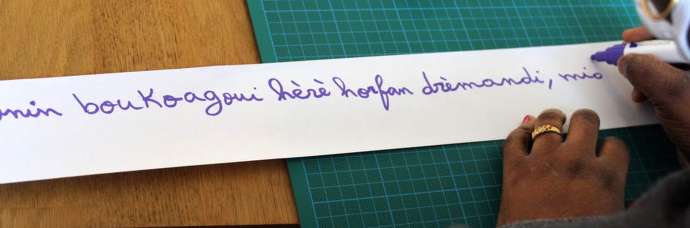 nnin boukoagoui hèrè horfan drèmandi, mio